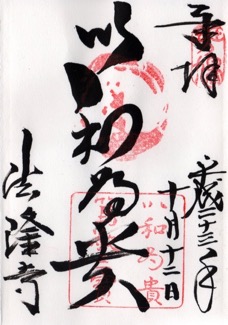 奉拝
平成二十三年
十月十二日
以和為貴
以和
為貴
法隆寺